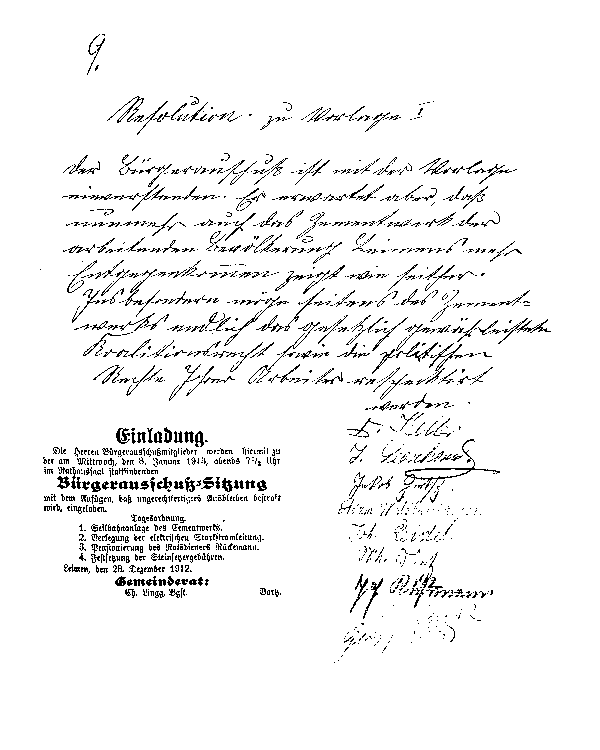 9.
Resolution zu Vorlage I
Der Bürgerausschuß ist mit der Vorlage
einverstanden. Er erwartet aber, daß
nunmehr auch das Zementwerk der
arbeitenden Bevölkerung Leimens mehr
Entgegenkommen zeigt wie seither.
Insbesondere möge seitens des Zement-
werks endlich das gesetzlich gewährleistete
Koalitionsrecht sowie die politischen
Rechte Ihrer Arbeiter respecktirt
werden.
Einladung.
Die Herren Bürgerausschußmitglieder werden hiermit zu
der am Mittwoch, den 8. Januar 1913, abends 7½ Uhr
im Rathaussaal stattfindenden
Bürgerausschuß-Sitzung
mit dem Anfügen, daß ungerechtfertigtes Ausbleiben bestraft
wird, eingeladen.
Tagesordnung.
1. Seilbahnanlage des Cementwerks.
2. Verlegung der elektrischen Starkstromleitung.
3. Pensionierung des Ratsdieners Rückemann.
4. Festsetzung der Steinsetzergebühren.
Leimen, den 28. Dezember 1912.
Gemeinderat:
Ch. Lingg, Bgst.
Jakob
Joh.
Georg